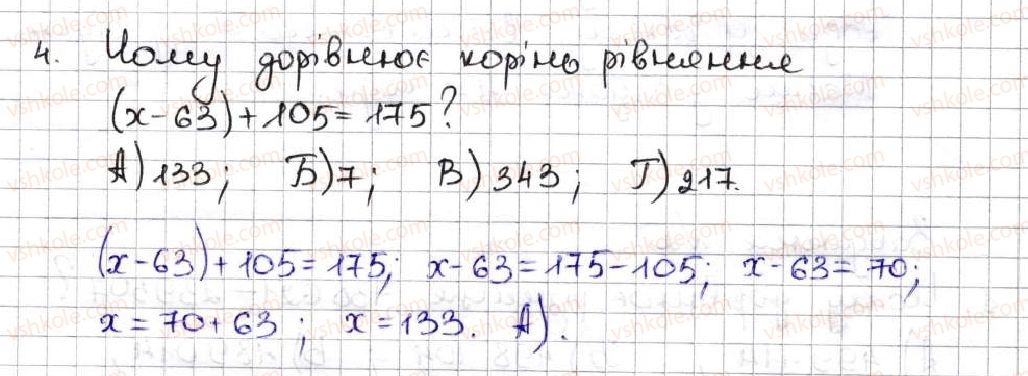 4. Чому дорівнює корінь рівняння
(x-63)+105=175?
А) 133; Б) 7; В) 343; Г) 217.
(x-63)+105=175; x-63=175-105; x-63=70;
x=70+63; x=133. А).